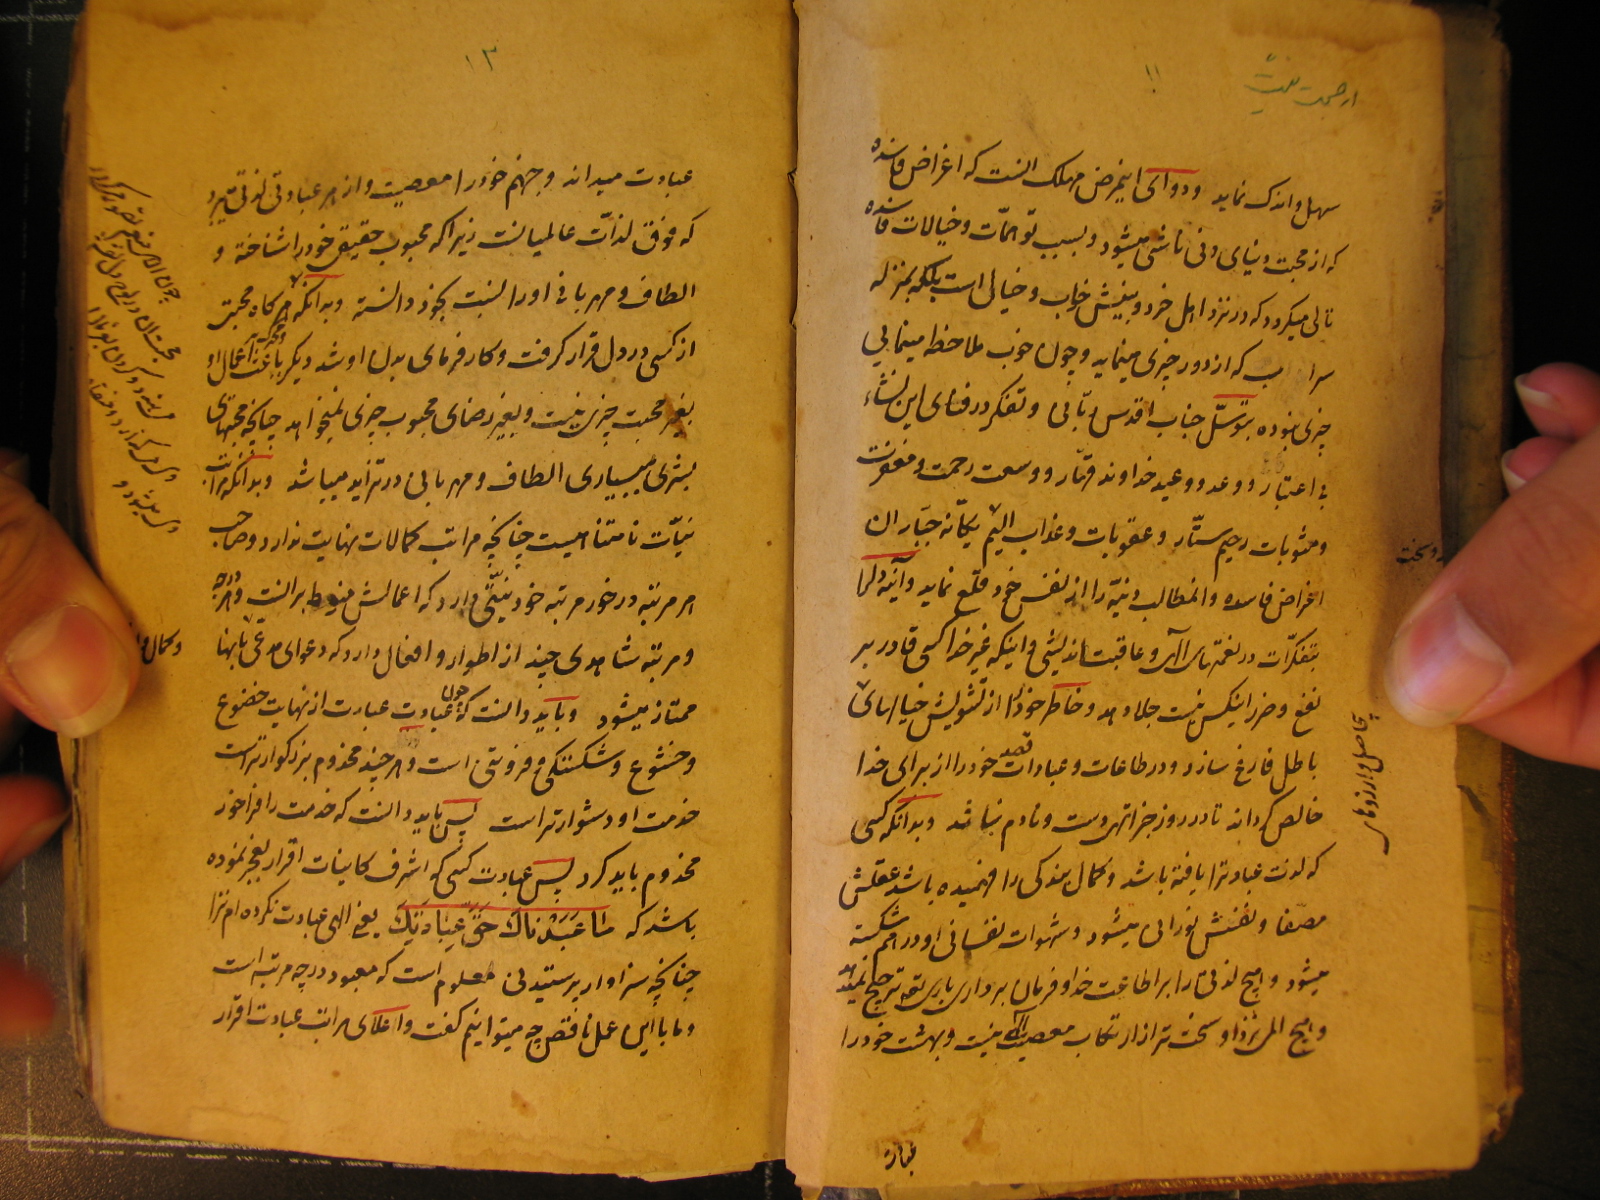 ۱۱
سهل و اندک نماید و دوای اینمرض مهلک آنست که اغراض فاسده
که از محبت دنیای دنی ناشی میشود و بسبب توهمات و خیالات فاسده
ناشی میگردد که در نزد اهل خرد و بینش خواب و خیالی است بلکه بمنزله
سرابی که از دور چیزی مینماید و چون خوب ملاحظه مینمایی
چیزی نبوده بتوسل جناب اقدس ربانی و تفکر در فنای این نشاء
بی اعتبار و وعد و وعید خداوند قهار و وسعت رحمت و مغفرت
و مثوبات رحیم ستار و عقوبات و عذاب الیم یگانه جباران
اغراض فاسده و انمطالب دنیه را از نفس خود قلع نماید و آینه دلرا
بتفکرات در نعمتهای الهی و عاقبت اندیشی و اینکه غیر خدا کسی قادر بر
نفع و ضرر اینکس نیست جلا دهد و خاطر خود را از تشویش خیالهای
باطل فارغ سازد و در طاعات و عبادات قصد خود را از برای خدا
خالص گرداند تا در روز جزا تهی دست و نادم نباشد و بدانکه کسی
که لذت عبادترا یافته باشد و کمال بندگی را فهمیده باشد عقلش
مصفا و نفسش نورانی میشود و شهوات نفسانی او در هم شکسته
میشود و هیچ لذتی را بر اطاعت خدا و فرمان برداری باری تعالی ترجیح نمیدهد
و هیچ المی نزد او سخت تر از ارتکاب معصیت الهی نیست و بهشت خود را
عبادت
۱۳
عبادت میداند و جهنم خود را معصیت و از هر عبادتی لذتی میبرد
که فوق لذات عالمیانست زیرا که محبوب حقیقی خود را شناخته و
الطاف و مهربانی او را نسبت بخود دانسته و بدانکه هر گاه محبت
از کسی در دل قرار گرفت و کارفرمای بدن او شد دیگر باعث اعمال او
بغیر محبت چیزی نیست و بغیر رضای محبوب چیزی نمیخواهد چنانچه محبتهای
بشری ببسیاری الطاف و مهربانی در تزاید میباشد و بدانکه مراتب
نیات نامتناهیست چنانچه مراتب کمالات نهایت ندارد و صاحب
هر مرتبه در خور مرتبه خود نیتی دارد که اعمالش منوط بر انست و هر درجه
و مرتبه شاهدی چند از اطوار و افعال دارد که دعوای مدعی بانها
ممتاز میشود و باید دانست که چون عبادت عبارت از نهایت خضوع
و خشوع و شکستگی و فروتنی است و هر چند مخدوم بزرگوارتر است
خدمت او دشوارتر است پس باید دانست که خدمت را فراخور
مخدوم باید کرد پس عبادت کسی که اشرف کاینات اقرار بعجز نموده
باشد که ما عبدناک حق عبادتک یعنی الهی عبادت نکرده ام ترا
چنانچه سزاوار پرستیدنی معلوم است که معبود در چه مرتبه است
و ما با این عمل ناقص چه میتوانیم گفت و اعلای مراتب عبادت اقرار